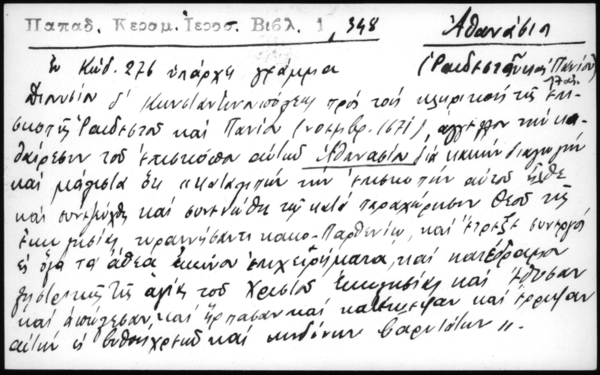 Παπαδ. Κερσμ. Ιερσσ. Βιβλ. 1, 348
Ἀθανάσιος
(Ραιδεστοῦ καὶ Πανίου)
Ἐν Κώδ. 276 ὑπάρχει γράμμα
Διονυσίου δ' Κωνσταντινουπόλεως πρὸς τοὺς κληρικοὺς τῆς ἐπι-
σκοπῆς Ραιδεστοῦ καὶ Πανίου (νοεμβρ. 1671), ἀγγέλλον τὴν κα-
θαίρεσιν τοῦ ἐπισκόπου αὐτῶν Ἀθανασίου διὰ κακὴν διαγωγὴν
καὶ μάλιστα ὅτι "καταλιπὼν τὴν ἐπισκοπὴν αὐτοῦ ἦλθε
καὶ συνεμίχθη καὶ συνηνώθη τῷ κατὰ παραχώρησιν Θεοῦ τῆς
ἐκκλησίας τυραννήσαντι κακο-Παρθενίῳ, καὶ ἔτρεξε συνεργὸς
εἰς ὅλα τὰ ἄθεα ἐκείνου ἐπιχειρήματα, καὶ κατέδραμον
τῆς ἁγίας τοῦ Χριστοῦ Ἐκκλησίας καὶ
καὶ ἀπώλεσαν, καὶ ἥρπασαν καὶ καὶ ἔρριψαν
αὐτὴν εἰς βυθὸν χρεῶν καὶ κινδύνων βαρυτάτων".